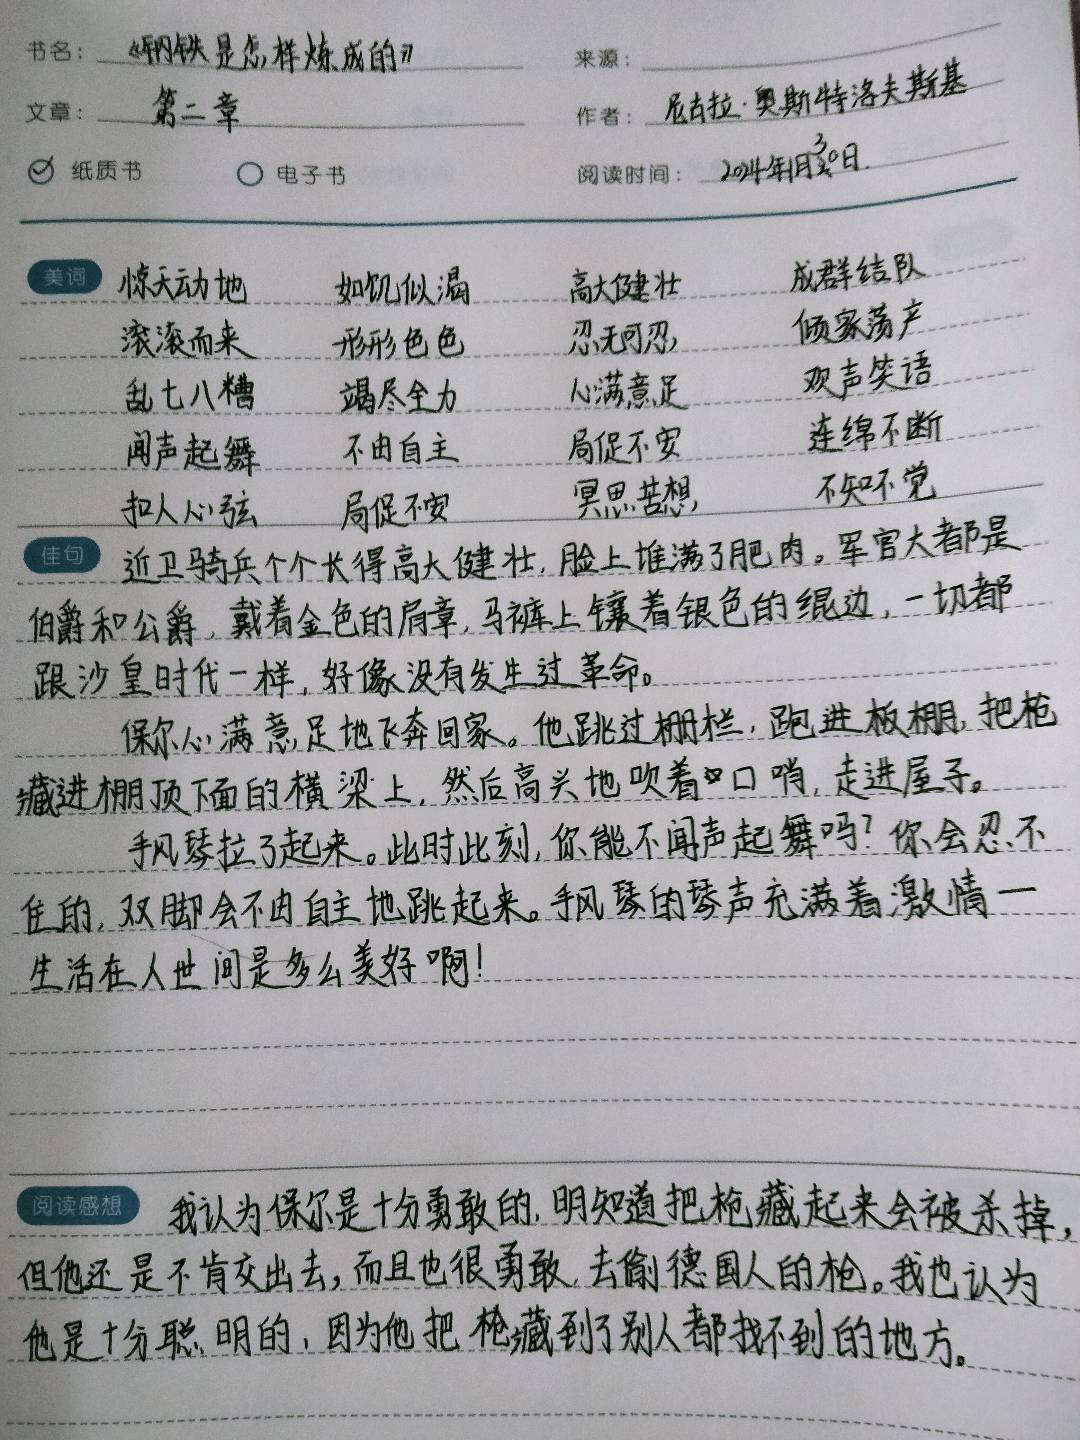 书名： 《钢铁是怎样炼成的》 来源：
文章： 第二章 作者： 尼古拉·奥斯特洛夫斯基
纸质书 电子书 阅读时间： 2024年1月30日.
美词 惊天动地 如饥似渴 高大健壮 成群结队
滚滚而来 形形色色 忍无可忍 倾家荡产
乱七八糟 竭尽全力 心满意足 欢声笑语
闻声起舞 不由自主 局促不安 连绵不断
扣人心弦 局促不安 冥思苦想 不知不觉
佳句 近卫骑兵个个长得高大健壮，脸上堆满了肥肉。军官大都是
伯爵和公爵，戴着金色的肩章，马裤上镶着银色的绲边，一切都
跟沙皇时代一样，好像没有发生过革命。
保尔心满意足地飞奔回家。他跳过栅栏，跑进板棚，把枪
藏进棚顶下面的横梁上，然后高兴地吹着口哨，走进屋子。
手风琴拉了起来。此时此刻，你能不闻声起舞吗？你会忍不
住的，双脚会不由自主地跳起来。手风琴的琴声充满着激情一
生活在人世间是多么美好啊！
阅读感想 我认为保尔是十分勇敢的，明知道把枪藏起来会被杀掉，
但他还是不肯交出去，而且也很勇敢，去偷德国人的枪。我也认为
他是十分聪明的，因为他把枪藏到了别人都找不到的地方。